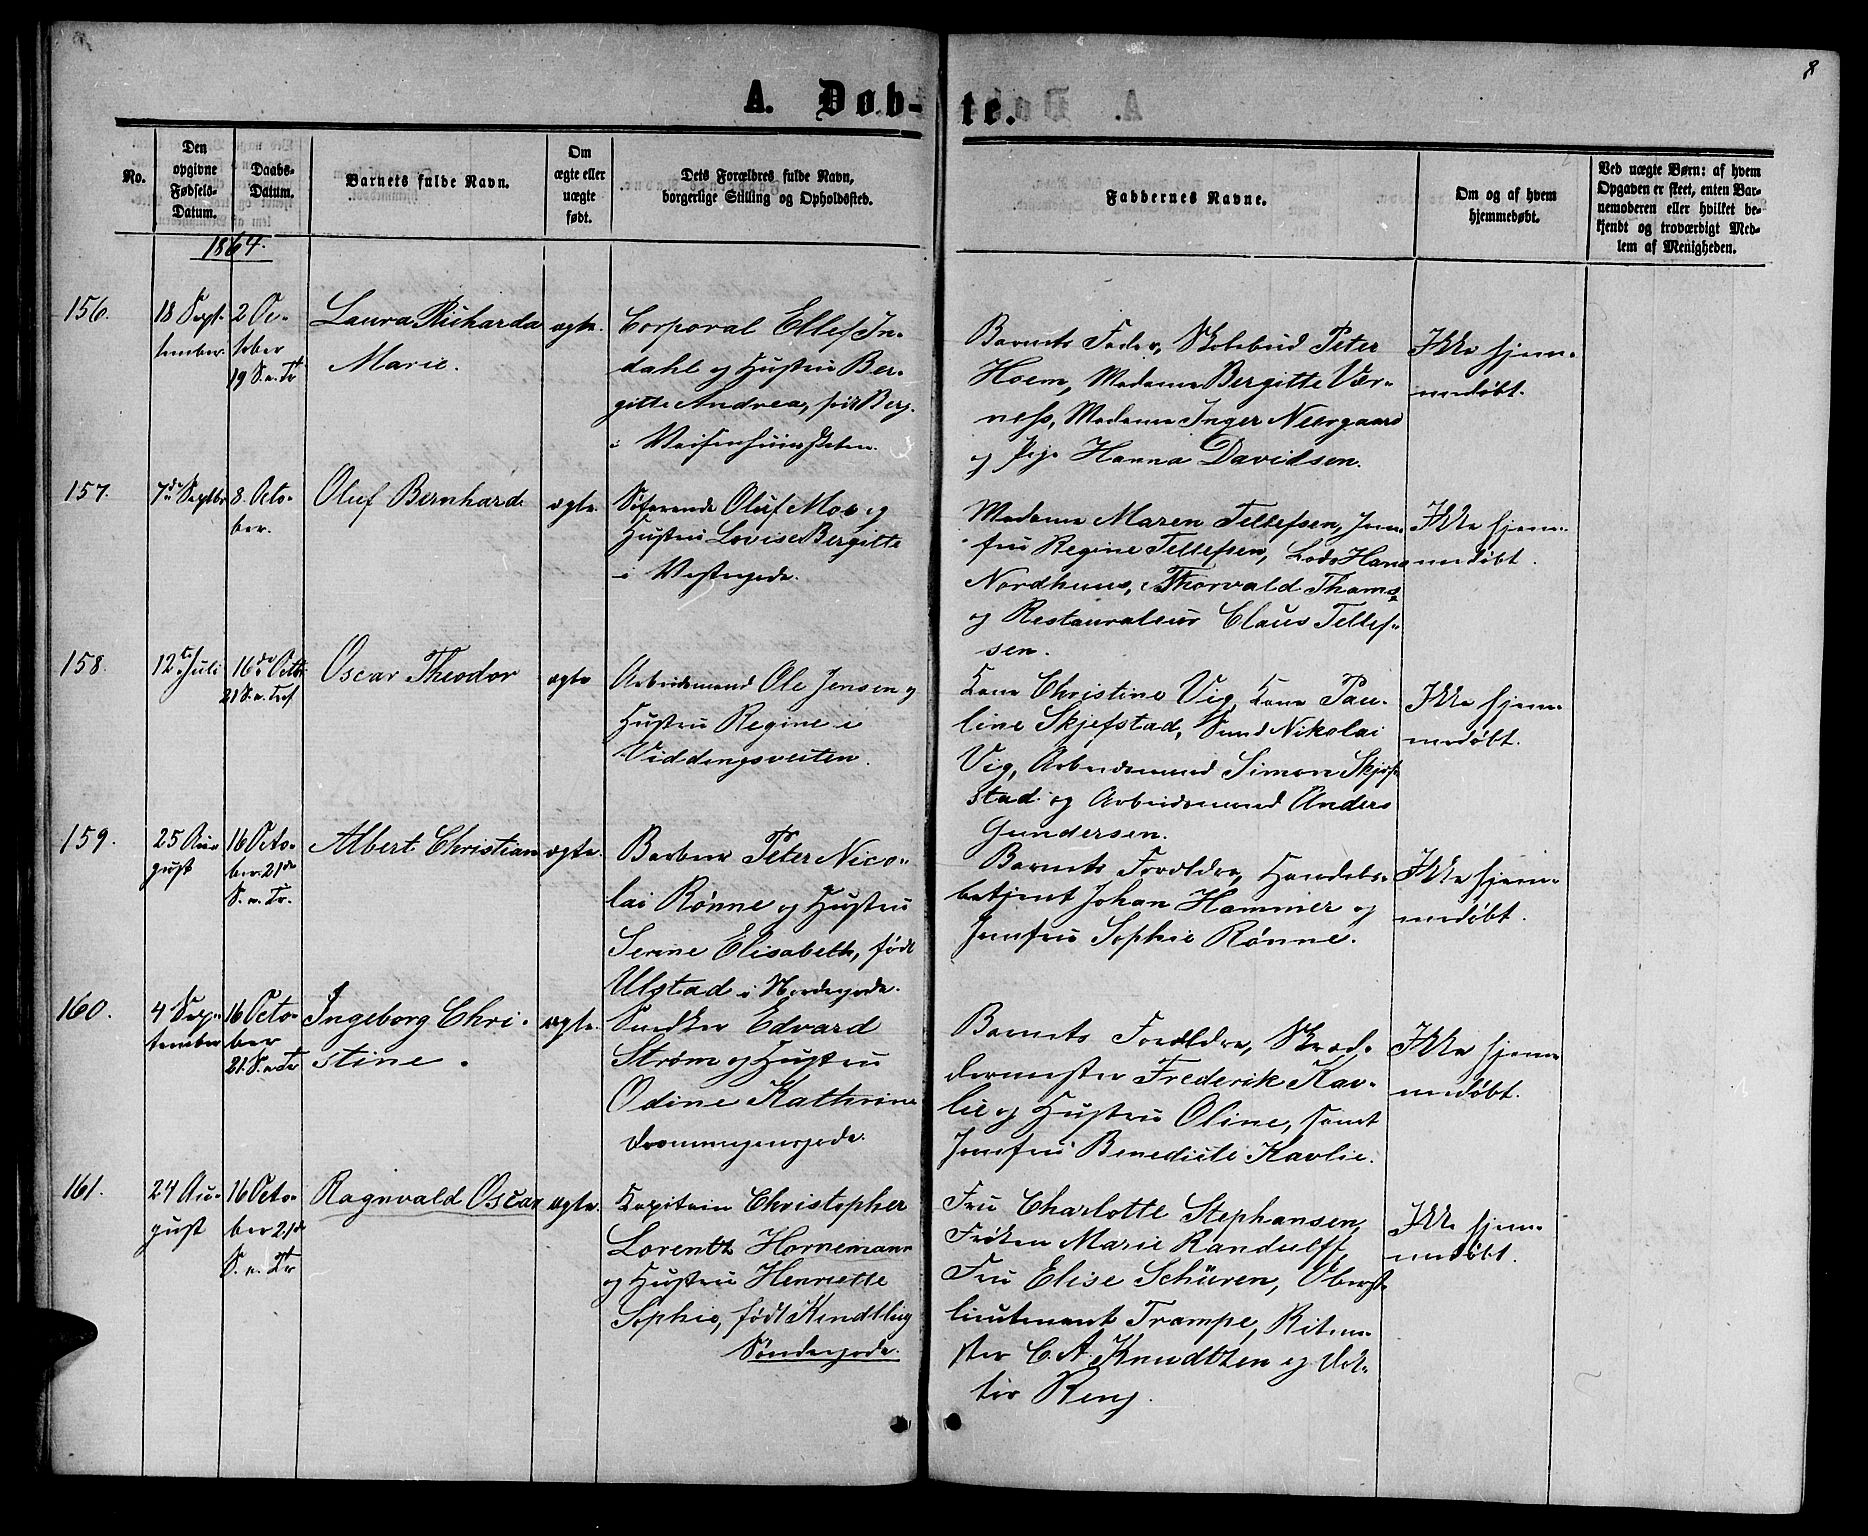 8
A. Døb-te.
No.
Den
opgivne
Fødsels-
Datum.
Daabs-
Datum.
Barnets fulde Navn.
Om
ægte eller
uægte
født.
Dets Forældres fulde Navn,
borgerlige Stilling og Opholdssted.
Faddernes Navne.
Om og af hvem
hjemmedøbt.
Ved uægte Børn: af hvem
Opgaven er skeet, enten Bar-
nemoderen eller hvilket be-
kjendt og troværdigt Med-
lem af Menigheden.
1864.
156.
18 Sept-
tember.
2 Oc-
tober
19 S.e.Tr
Laura Richarda
Marie.
ægte.
Corporal Ellef In-
dahl og Hustru Ber-
gitte Andrea, født Berg.
i Vaisenhuusgaden.
Barnets Fader, Skolebud Peter
Hoem, Madame Bergitte Vær-
ness, Madame Inger Neergaard
og Pige Hanna Davidsen.
Ikke hjem-
medøbt.
157.
7de Septbr
8. Octo-
ber.
Oluf Bernhard.
ægte.
Søfarende Oluf Moe og
Hustru Lovise Bergitte
i Vestergade.
Madame Maren Tellefsen, Jom-
fru Regine Tellefsen, Lods Hans
Nordhuus, Thorvald Thams
og Restaurateur Claus Tellef-
sen.
Ikke hjem-
medøbt.
158.
12te Juli
16de Octb.
21 S.e.Tref
Oscar Theodor
ægte
Arbeidsmand Ole Jensen og
Hustru Regine i
Viddingsveiten.
Kone Christine Vig, Kone Pau-
line Skjefstad, Svend Nikolai
Vig, Arbeidsmand Simon Skjef-
stad og Arbeidsmand Anders
Gundersen.
Ikke hjem-
medøbt.
159.
25 Au-
gust
16 Octo-
ber. 21de
S.e.Tr.
Albert Christian
ægte.
Barber Peter Nico-
lai Rønne og Hustru
Serine Elisabeth, født
Ulstad i Nordregade.
Barnets Forældre, Handels-
betjent Johan Hammer og
Jomfru Sophie Rønne.
Ikke hjem-
medøbt.
160.
4 Sep-
tember
16 Octo-
ber
21. S.e.Tr
Ingeborg Chri-
stine.
ægte.
Snedker Edvard
Strøm og Hustru
Odine Kathrine
Dronningensgade.
Barnets Forældre, Skræd-
dermester Frederik Kav-
lie og Hustru Oline, samt
Jomfru Benedicte Kavlie.
Ikke hjem-
medøbt.
161.
24 Au-
gust
16 Octo-
ber 21de
S.e.Tr
Ragnvald Oscar
ægte.
Kapitain Christopher
Lorentz Hornemann
og Hustru Henriette
Sophie, født Kindtlig
Søndregade.
Fru Charlotte Stephansen,
Frøken Marie Randulff,
Fru Elise Schüren, Oberst-
lieutenant Trampe, Ritme-
ster C. A. Knudtzon og Dok-
tor Reng.
Ikke hjem-
medøbt.